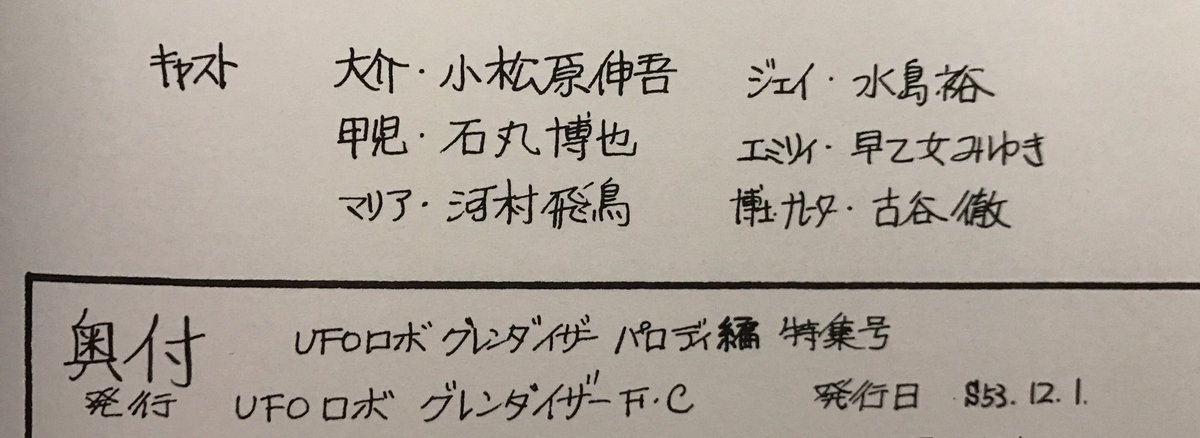 キャスト 大介・小松原伸吾 ジェイ・水島裕
甲児・石丸博也 エミリィ・早乙女みゆき
マリア・河村飛鳥 博士・ナレーター・古谷徹
奥付 UFOロボ グレンダイザー パロディ編 特集号
発行 UFOロボ グレンダイザー F・C 発行日 S53.12.1.